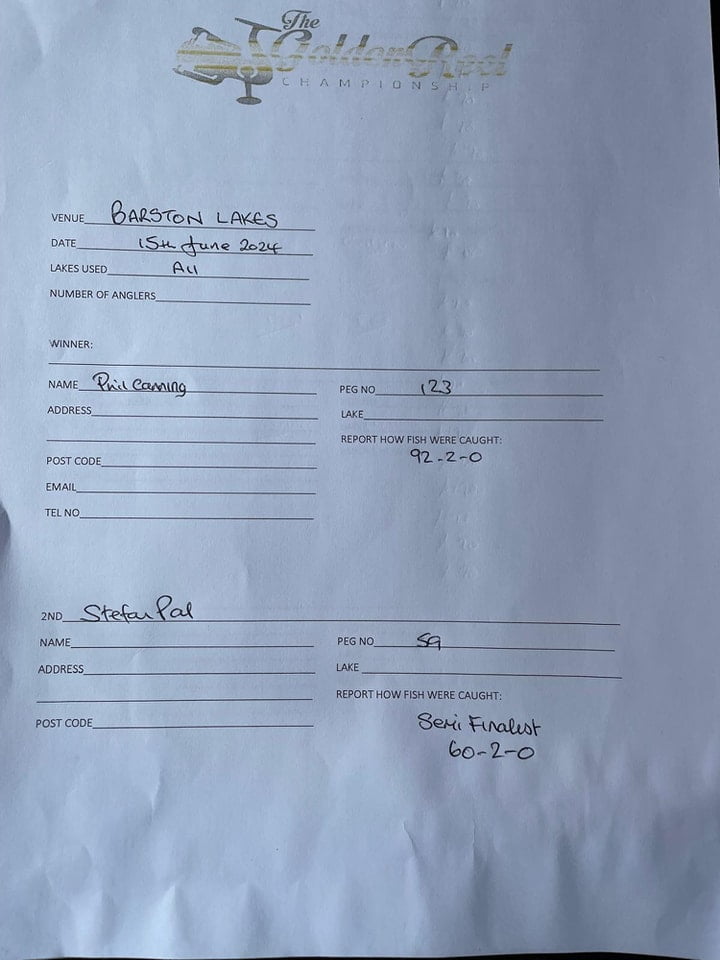 The
Golden Reel
CHAMPIONSHIP
VENUE BARSTON LAKES
DATE 15th June 2024
LAKES USED All
NUMBER OF ANGLERS
WINNER:
NAME Phil Canning
PEG NO 123
ADDRESS
LAKE
REPORT HOW FISH WERE CAUGHT:
92-2-0
POST CODE
EMAIL
TEL NO
2ND Stefan Pal
NAME
PEG NO 59
ADDRESS
LAKE
REPORT HOW FISH WERE CAUGHT:
POST CODE
Semi Finalist
60-2-0